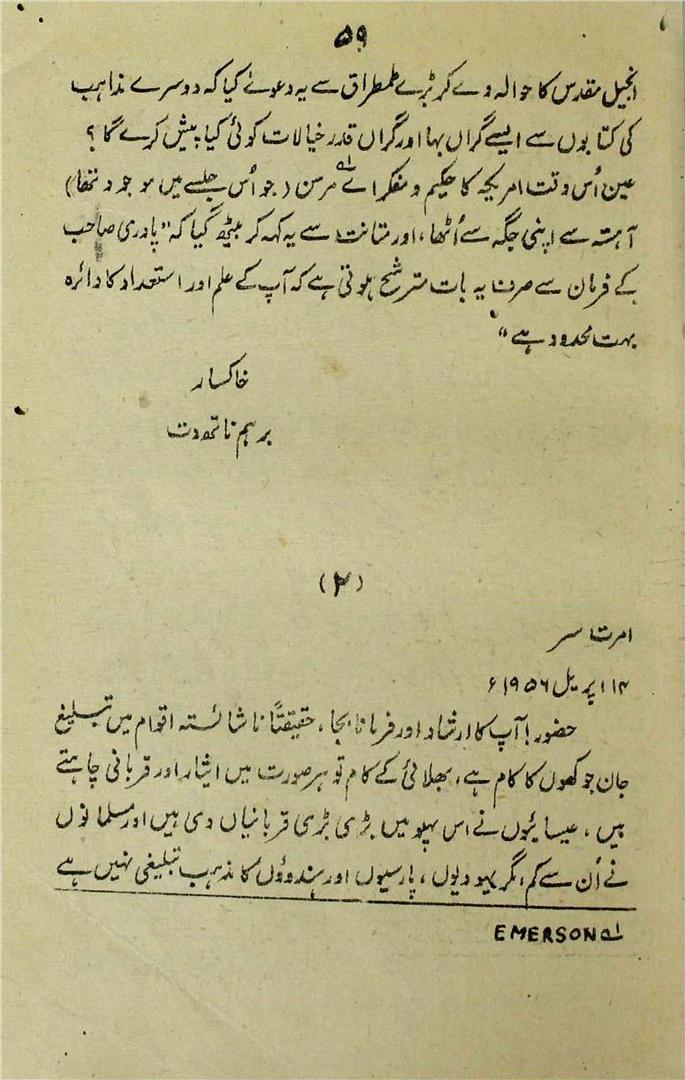 ۵۹
انجیل مقدس کا حوالہ دے کر بڑے طمطراق سے یہ دعوےٰ کیا کہ دوسرے مذاہب
کی کتابوں سے ایسے گراں بہا اور گراں قدر خیالات کوئی کیا پیش کرے گا ؟
عین اُس وقت امریکہ کا حکیم و مفکر ایمرسن (جو اُس جلسے میں موجود تھا)
آہستہ سے اپنی جگہ سے اُٹھا، اور متانت سے یہ کہہ کر بیٹھ گیا کہ "پادری صاحب
کے فرمان سے صرف یہ بات مترشح ہوتی ہے کہ آپ کے علم اور استعداد کا دائرہ
بہت محدود ہے"
خاکسار
برہم ناتھ دت
(۲)
امرت سر
۱۴ اپریل ۱۹۵۶ء
حضور! آپ کا ارشاد اور فرمانا بجا، حقیقتاً ناشائستہ اقوام میں تبلیغ
جان جوکھوں کا کام ہے، بھلائی کے کام تو ہر صورت میں ایثار اور قربانی چاہتے
ہیں، عیسائیوں نے اس پہلو میں بڑی بڑی قربانیاں دی ہیں اور مسلمانوں
نے اُن سے کم، مگر یہودیوں، پارسیوں اور ہندوؤں کا مذہب تبلیغی نہیں ہے
لہ EMERSON